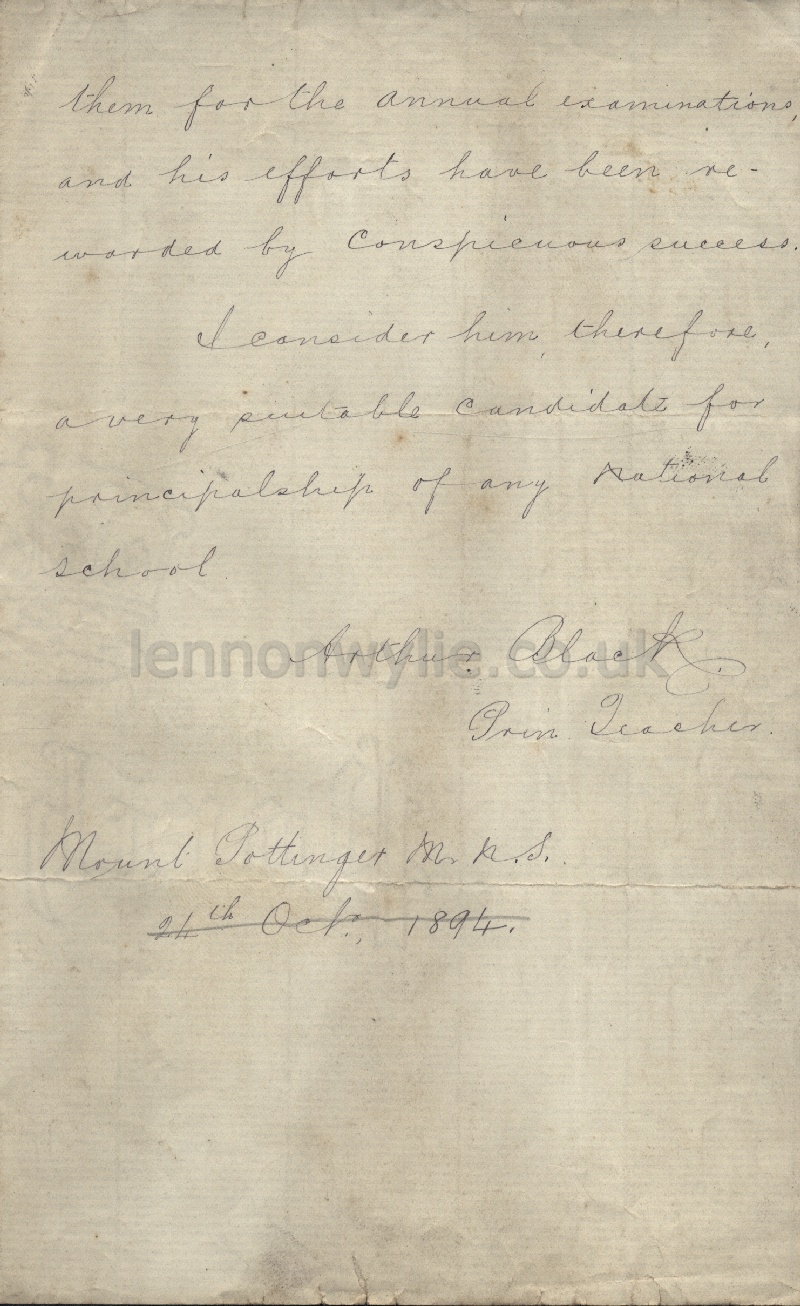 them for the annual examinations,
and his efforts have been re-
warded by conspicuous success.
I consider him, therefore,
a very suitable candidate for
principalship of any National
school.
Arthur Black.
lennonwylie.co.uk
Prin. Teacher.
Mount Pottinger M. N. S.
24th Oct., 1894.